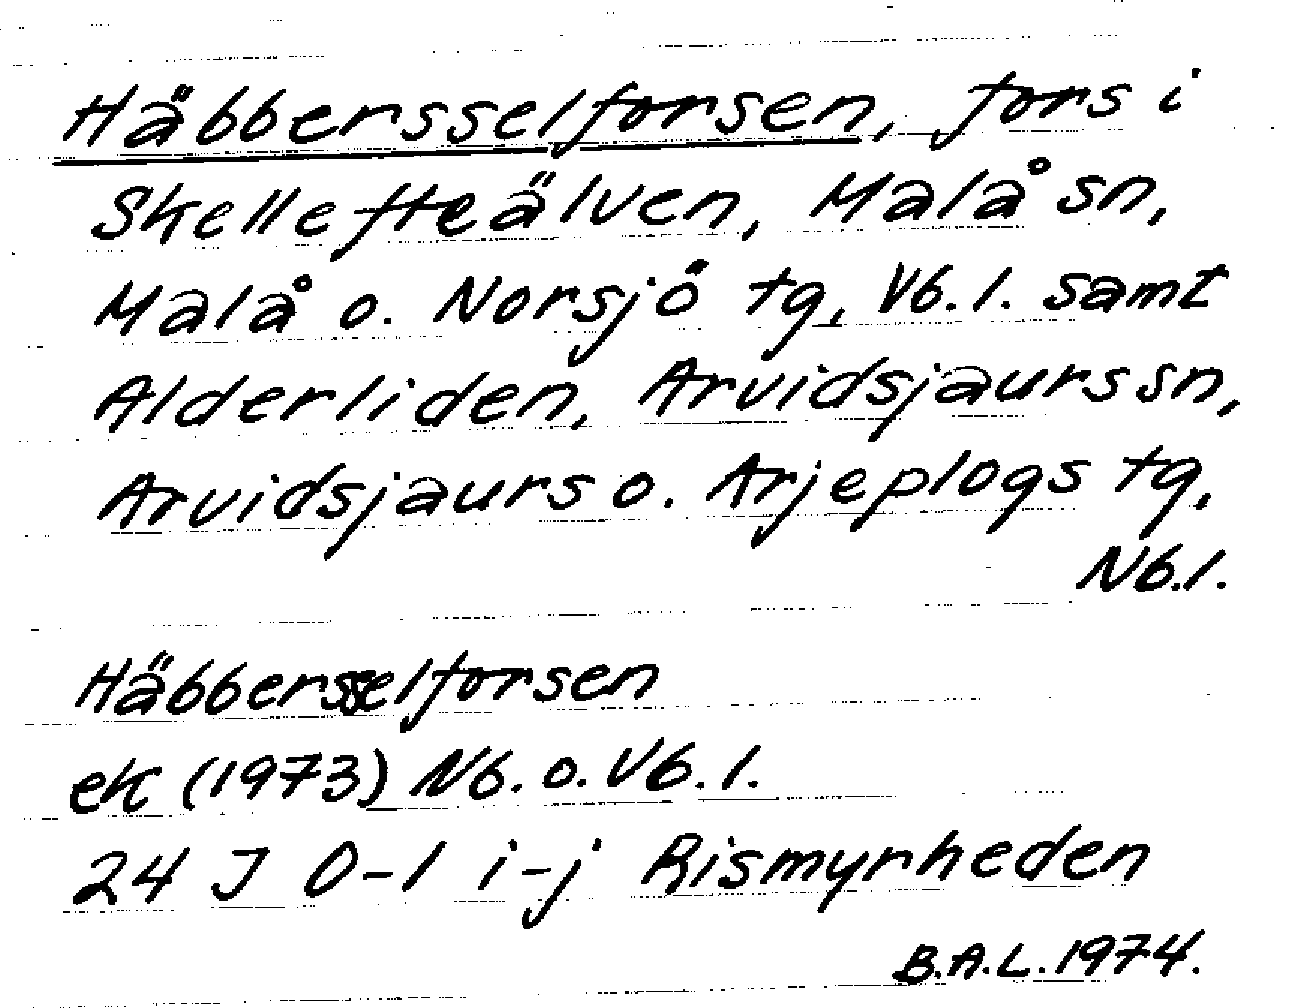 Häbbersselforsen, fors i
Skellefteälven, Malå sn,
Malå o. Norsjö tg, Vb. l. samt
Alderliden, Arvidsjaurs sn,
Arvidsjaurs o. Arjeplogs tg,
Nb. l.
Häbbersselforsen
ek (1973) Nb. o. Vb. l.
24 J 0-1 i-j Rismyrheden
B.A.L. 1974.